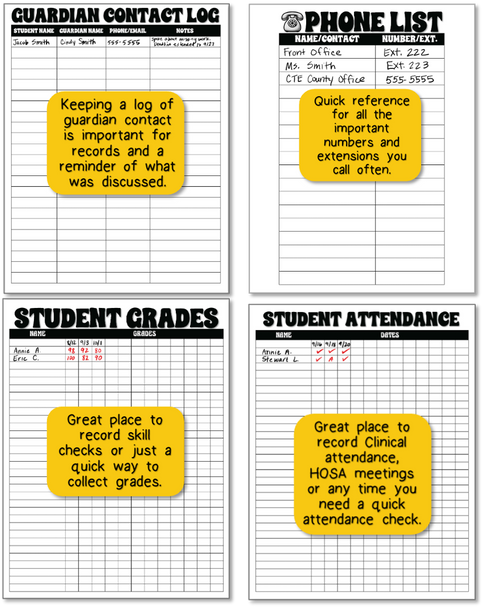 GUARDIAN CONTACT LOG
STUDENT NAME GUARDIAN NAME PHONE/EMAIL NOTES
Jacob Smith Cindy Smith 555-5555 Spoke about missing work.
Deadline extended to 9/23
Keeping a log of
guardian contact
is important for
records and a
reminder of what
was discussed.
PHONE LIST
NAME/CONTACT NUMBER/EXT.
Front Office Ext. 222
Ms. Smith Ext. 223
CTE County Office 555-5555
Quick reference
for all the
important
numbers and
extensions you
call often.
STUDENT GRADES
NAME GRADES
9/3 10/1
Annie A 98 92 80
Eric C. 100 82 90
Great place to
record skill
checks or just a
quick way to
collect grades.
STUDENT ATTENDANCE
NAME DATES
9/16 9/18 9/20
Annie A. ✓ ✓ ✓
Stewart L ✓ A ✓
Great place to
record Clinical
attendance,
HOSA meetings
or any time you
need a quick
attendance check.